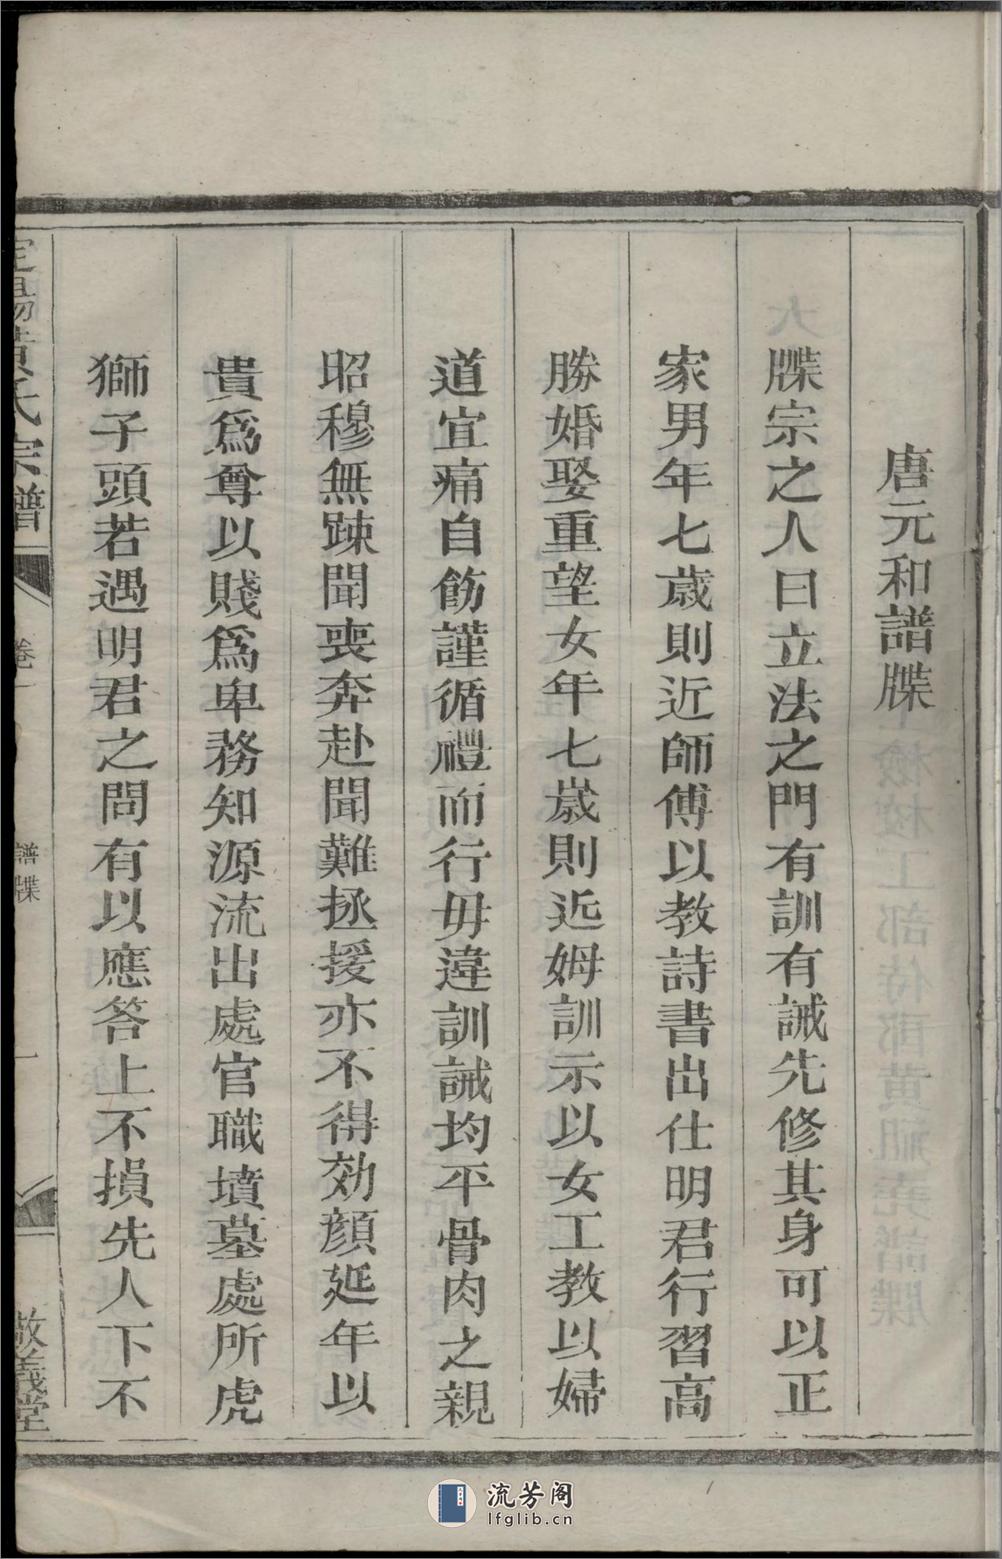 唐元和譜牒
牒宗之人曰立法之門有訓有誡先修其身可以正
家男年七歲則近師傅以教詩書出仕明君行習高
勝婚娶重望女年七歲則近姆訓示以女工教以婦
道宜痛自飭謹循禮而行毋違訓誡均平骨肉之親
昭穆無踈聞喪奔赴聞難拯援亦不得効顏延年以
貴爲尊以賤爲卑務知源流出處官職墳墓處所虎
獅子頭若遇明君之問有以應答上不損先人下不
黃氏宗譜
卷一
譜牒
一
敬義堂
流芳阁
lfglib.cn